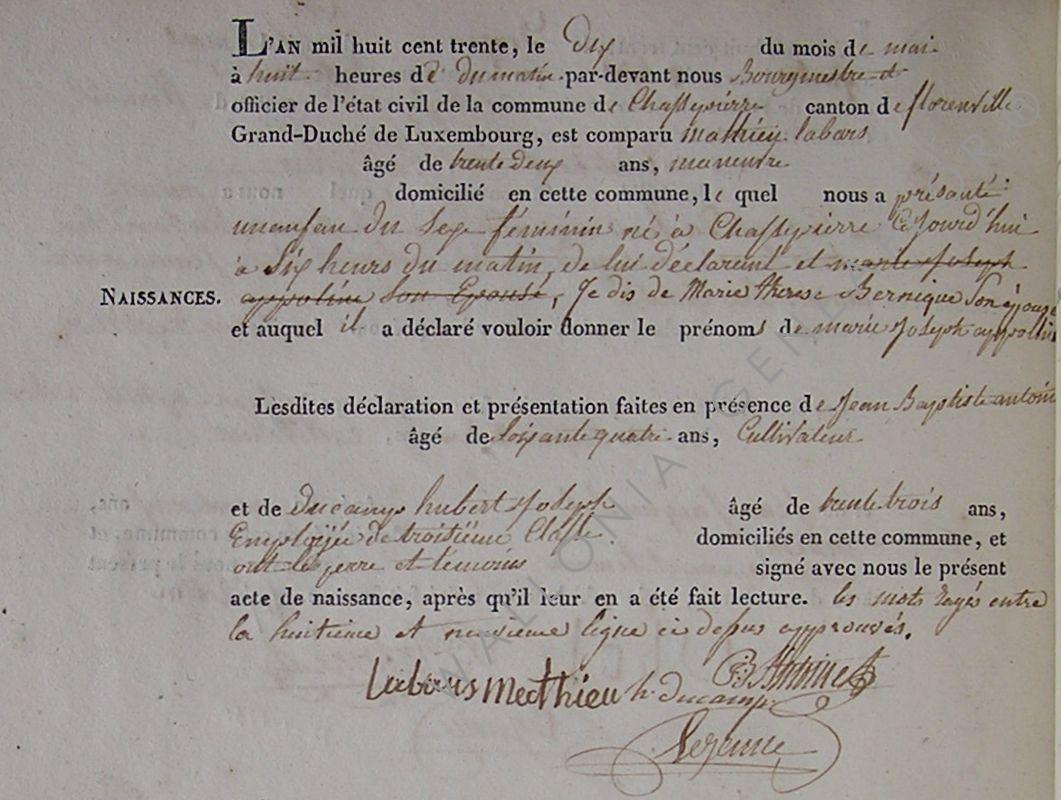 L'AN mil huit cent trente, le Dix du mois de mai
à huit heures de du matin par-devant nous Bourgmestre et
officier de l'état civil de la commune de Chassepierre canton de florenville
Grand-Duché de Luxembourg, est comparu mathieu labars
âgé de trente deux ans, maneuvre
domicilié en cette commune, le quel nous a présanté
un enfan du sexe féminin né à Chassepierre Cejourd'hui
à Six heurs du matin, de lui déclarent et marie Joseph
appoline Son Epouse, Je dis de Marie therese Bernique Son épouse
NAISSANCES.
et auquel il a déclaré vouloir donner le prénoms de marie Joseph appoline
Lesdites déclaration et présentation faites en présence de Jean Baptiste antoine
âgé de Soixante quatre ans, Cultivateur
et de Ducamp hubert Joseph âgé de trente trois ans,
Employée de troisiéme Classe domiciliés en cette commune, et
ont les perre et témoins signé avec nous le présent
acte de naissance, après qu'il leur en a été fait lecture. les mots rayés entre
la huitieme et neuvieme ligne ci depus approuvés.
Labars Mathieu h. Ducamp
WALLONIA GENEALOGY